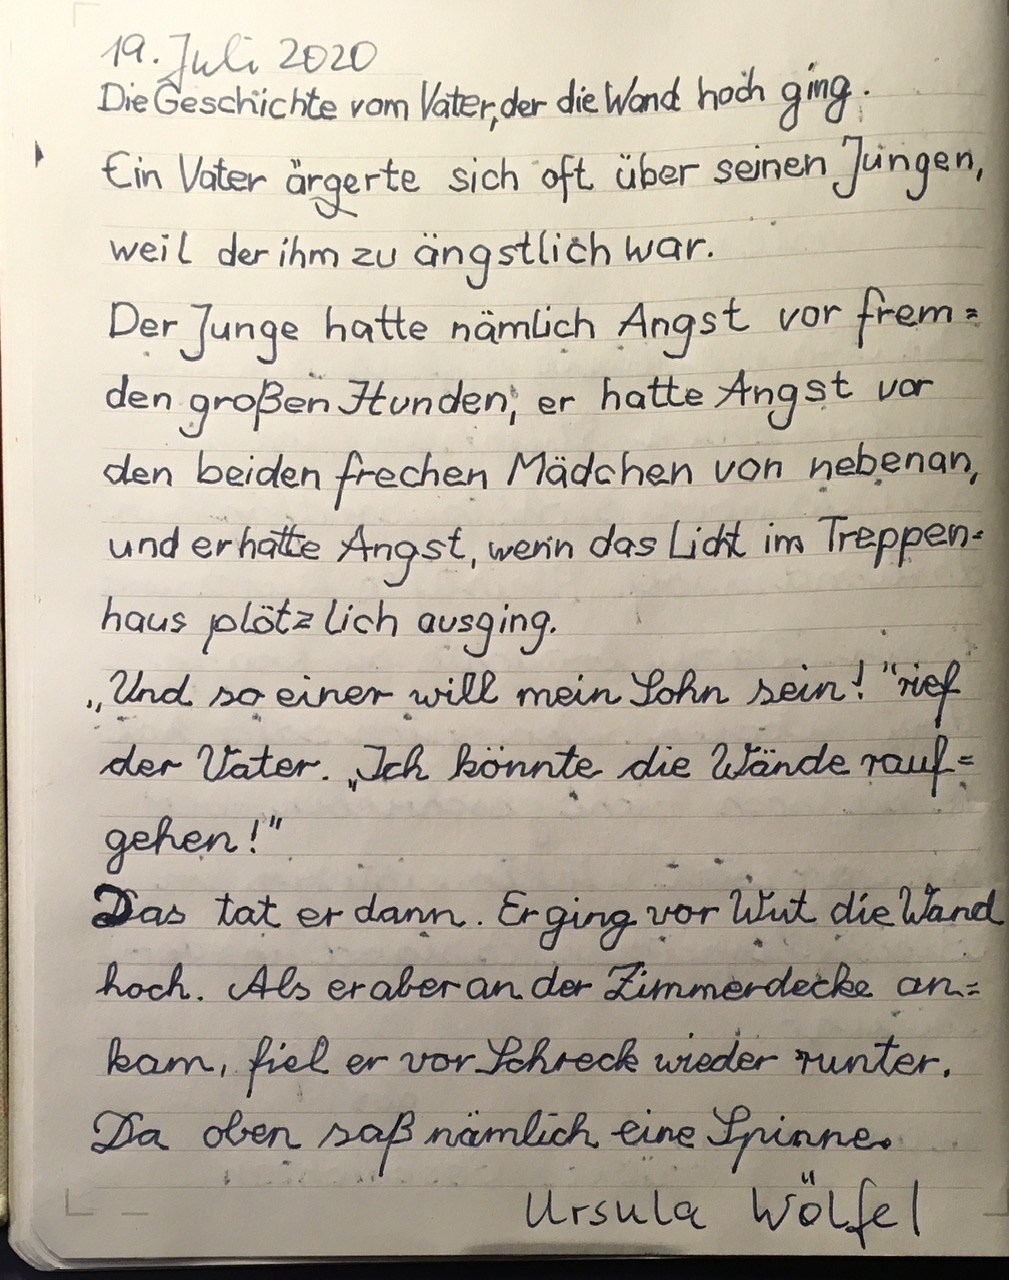 19. Juli 2020
Die Geschichte vom Vater, der die Wand hoch ging.
Ein Vater ärgerte sich oft über seinen Jungen,
weil der ihm zu ängstlich war.
Der Junge hatte nämlich Angst vor frem=
den großen Hunden, er hatte Angst vor
den beiden frechen Mädchen von nebenan,
und er hatte Angst, wenn das Licht im Treppen=
haus plötzlich ausging.
„Und so einer will mein Sohn sein!" rief
der Vater. „Ich könnte die Wände rauf=
gehen!"
Das tat er dann. Er ging vor Wut die Wand
hoch. Als er aber an der Zimmerdecke an=
kam, fiel er vor Schreck wieder runter.
Da oben saß nämlich eine Spinne.
Ursula Wölfel